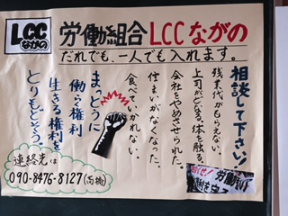 LCC
ながの
労働組合LCCながの
だれでも、一人でも入れます。
相談して下さい!
残業代がもらえない。
上司がどなる。体を触る。
会社をやめさせられた。
住まいがなくなった。
食べていかれない。
まっとうに
働ら権利
生きる権利を
とりもどそう。
連絡先は
090-8476-8127(高橋)